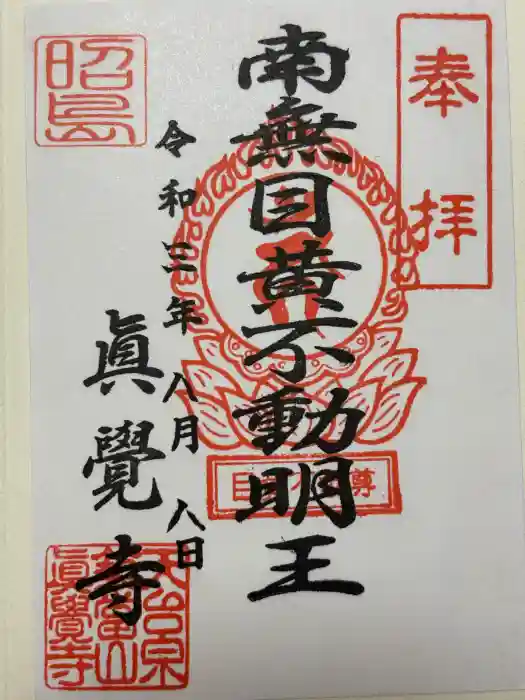 奉拝
南無目黄不動明王
令和三年八月八日
眞覺寺
昭島
尊
天台宗
眞覺寺